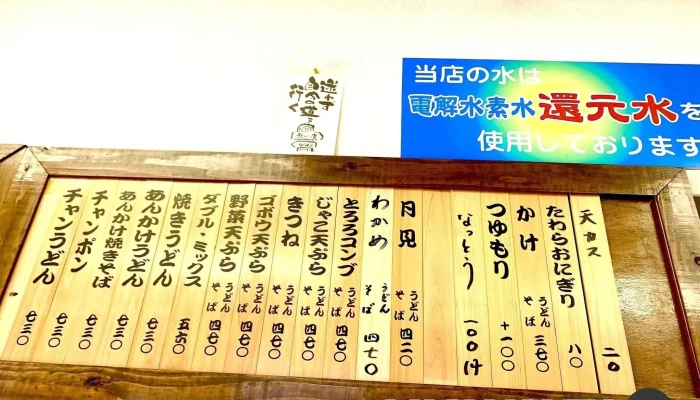 当店の水は
電解水素水還元水を
使用しております
迷わず
自分の立つ
行く
天カス 二〇
たわらおにぎり 八〇
かけ うどん そば 三七〇
つゆもり +一〇〇
なっとう 一〇〇円
月見 うどん そば 四二〇
わかめ うどん そば 四七〇
とろろコンブ うどん そば 四七〇
じゃこ天ぷら うどん そば 四七〇
きつね うどん そば 四七〇
ゴボウ天ぷら うどん そば 四七〇
野菜天ぷら うどん そば 四七〇
ダブル・ミックス うどん そば 四七〇
焼きうどん 五六〇
あんかけうどん 七三〇
あんかけ焼きそば 七三〇
チャンポン 七三〇
チャンうどん 七三〇